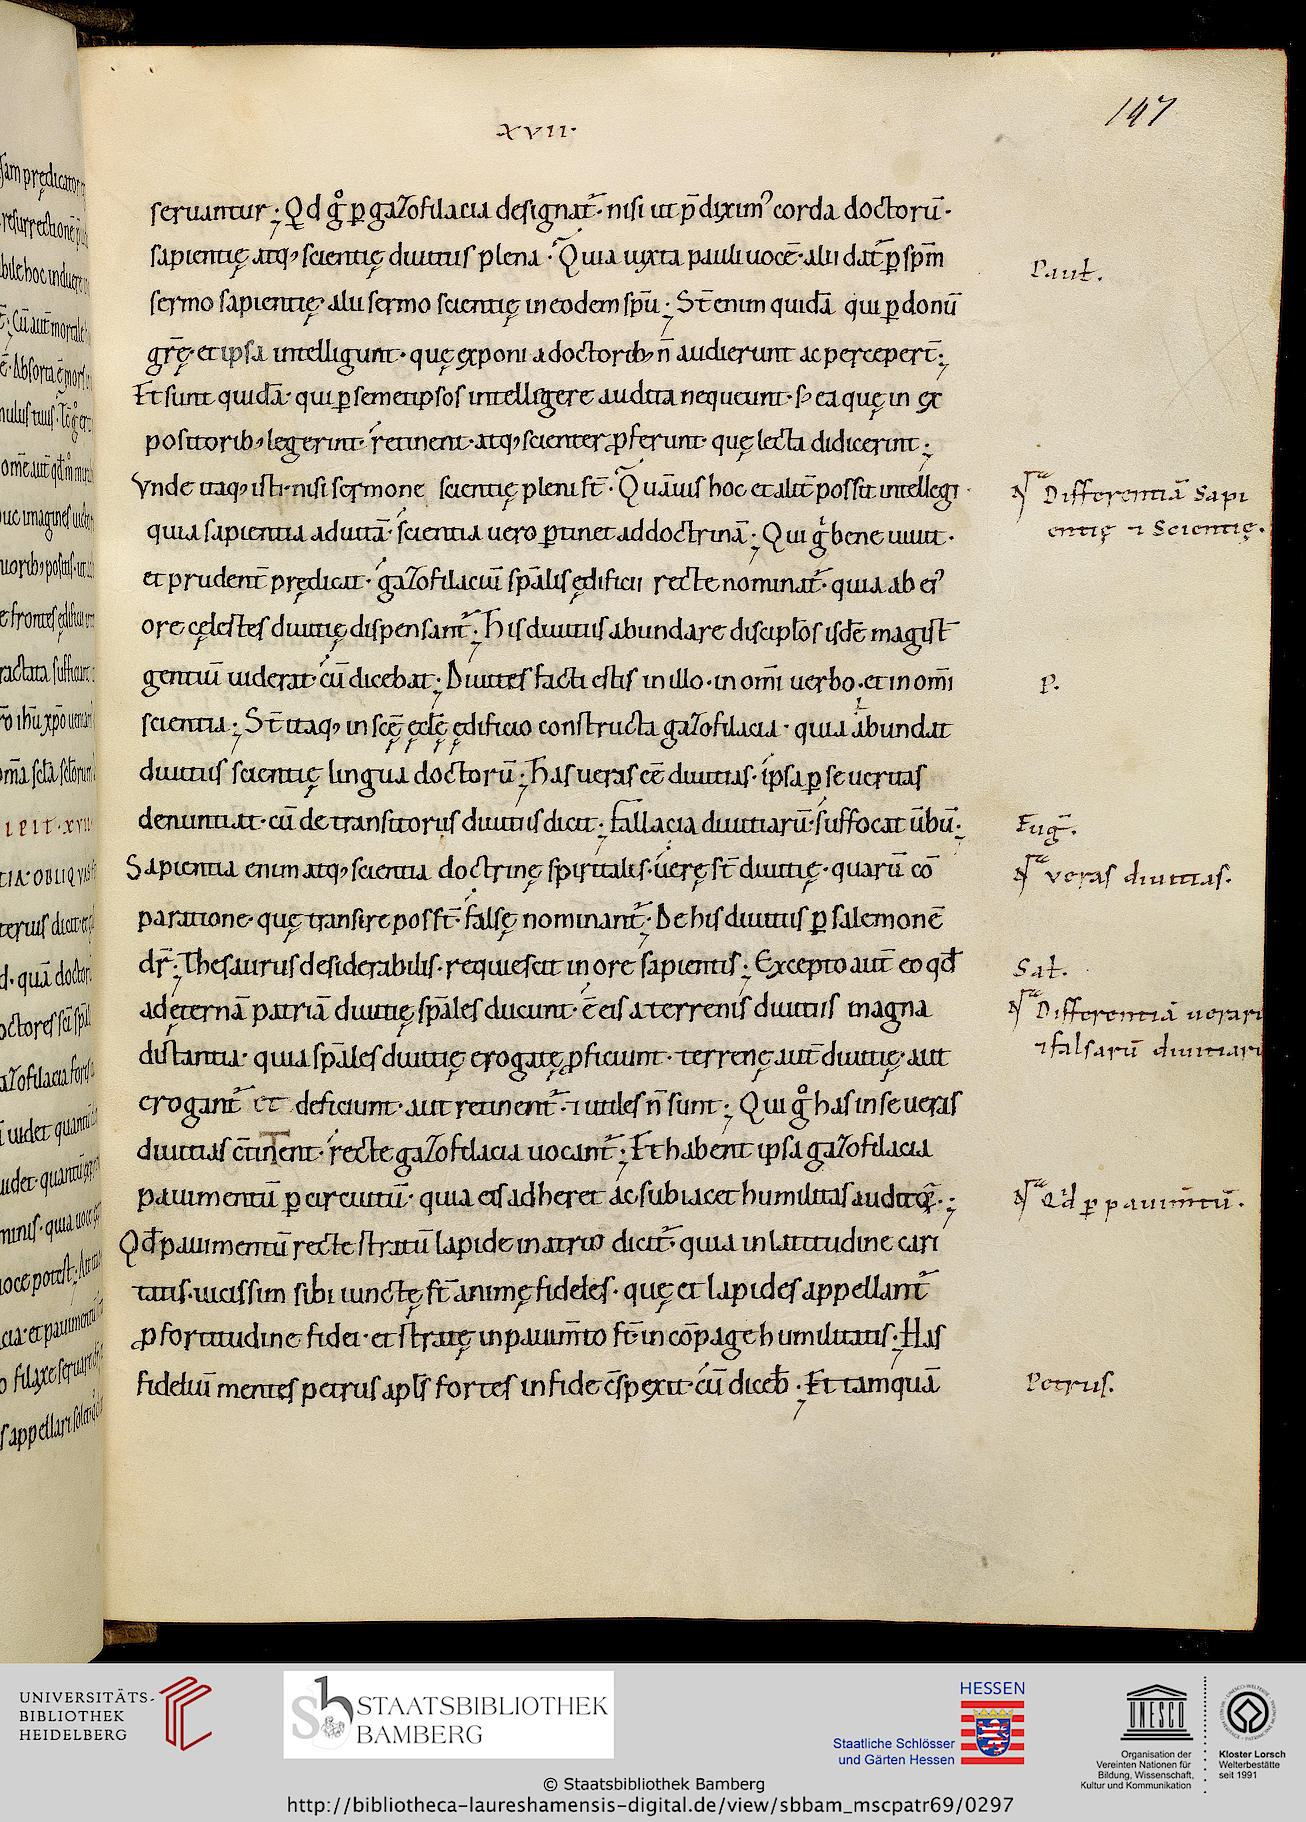 147
xvii·
seruantur; Qd gͦ ꝑ gazofilacia designat᷒· nisi ut p̄diximꝰ corda doctorū·
sapientię atq; scientię diuitiis plena· Quia iuxta pauli uocē· alii dat᷒ ꝑ sp̄m
Paul.
sermo sapientię· alii sermo scientię in eodem sp̄u; St̄ enim quidā qui ꝑ donū
gr̄ę· et ipsa intelligunt· quę exponi a doctorib; n̄ audierunt ac percepert̄;
Et sunt quidā· qui ꝑ semetipsos intellegere audita nequeunt· s; ea quę in ex
positorib; legerint· retinent· atq; scienter ꝓferunt· quę lecta didicerint;
Vnde itaq; isti· nisi sermone scientię pleni st̄· Quāuis hoc et alit̄ possit intellegi·
Differentiā Sapi
entię ⁊ Scientię·
quia sapientia ad uitā· scientia uero ꝑtinet ad doctrinā; Qui gͥ bene uiuit·
et prudent̄ prędicat· gazofilaciū sp̄alis ędificii recte nominat᷒· quia ab eiꝰ
ore cęlestes diuitię dispensant᷒; His diuitiis abundare discipl̄os isdē magist̄
gentiū uiderat· cū dicebat; Diuites facti estis in illo· in om̄i uerbo· et in om̄i
P.
scientia; St̄ itaq; in scę̄ ęclę̄ ędificio constructa gazofilacia· quia abundat
diuitiis scientię lingua doctorū; Has ueras eē diuitias· ipsa ꝑ se ueritas
denuntiat· cū de transitoriis diuitiis dicit; fallacia diuitiarū· suffocat ūbū;
Eug̅.
Sapientia enim atq; scientia doctrinę spiritalis· uerę st̄ diuitię· quarū cō
veras diuitias·
paratione· quę transire poss̄t· falsę nominant᷒· De his diuitiis ꝑ salemonē
dr̄; Thesaurus desiderabilis· requiescit in ore sapientis; Excepto aut̄ eo qd̄
Sal.
ad ęternā patriā diuitię sp̄ales ducunt· ē eis a terrenis diuitiis magna
Differentiā uerarū
⁊ falsarū diuitiarū
distantia· quia sp̄ales diuitię erogatę ꝓficiunt· terrenę aut̄ diuitię· aut
erogant᷒ et deficiunt· aut retinent᷒· ⁊ utiles n̄ sunt; Qui gͦ has in se ueras
diuitias c̄tinent· recte gazofilacia uocant᷒; Et habent ipsa gazofilacia
pauimentū ꝑ circuitū· quia eis adheret ac subiacet humilitas auditoꝝ·;
Qd ꝑ pauim̄tū·
Qd̄ pauimentū recte stratū lapide in atrio dicit᷒· quia in latitudine cari
tatis· uicissim sibi iunctę st̄ animę fideles· quę et lapides appellant᷒
ꝓ fortitudine fidei· et stratę in pauim̄to st̄· in cōpage humilitatis; Has
fideliū mentes petrus apl̄s fortes in fide c̄spexit· cū diceb̄; Et tamquā
Petrus.
UNIVERSITÄTS-
BIBLIOTHEK
HEIDELBERG
STAATSBIBLIOTHEK
BAMBERG
HESSEN
Staatliche Schlösser
und Gärten Hessen
UNESCO
Organisation der
Vereinten Nationen für
Bildung, Wissenschaft,
Kultur und Kommunikation
Kloster Lorsch
Welterbestätte
seit 1991
© Staatsbibliothek Bamberg
http://bibliotheca-laureshamensis-digital.de/view/sbbam_mscpatr69/0297